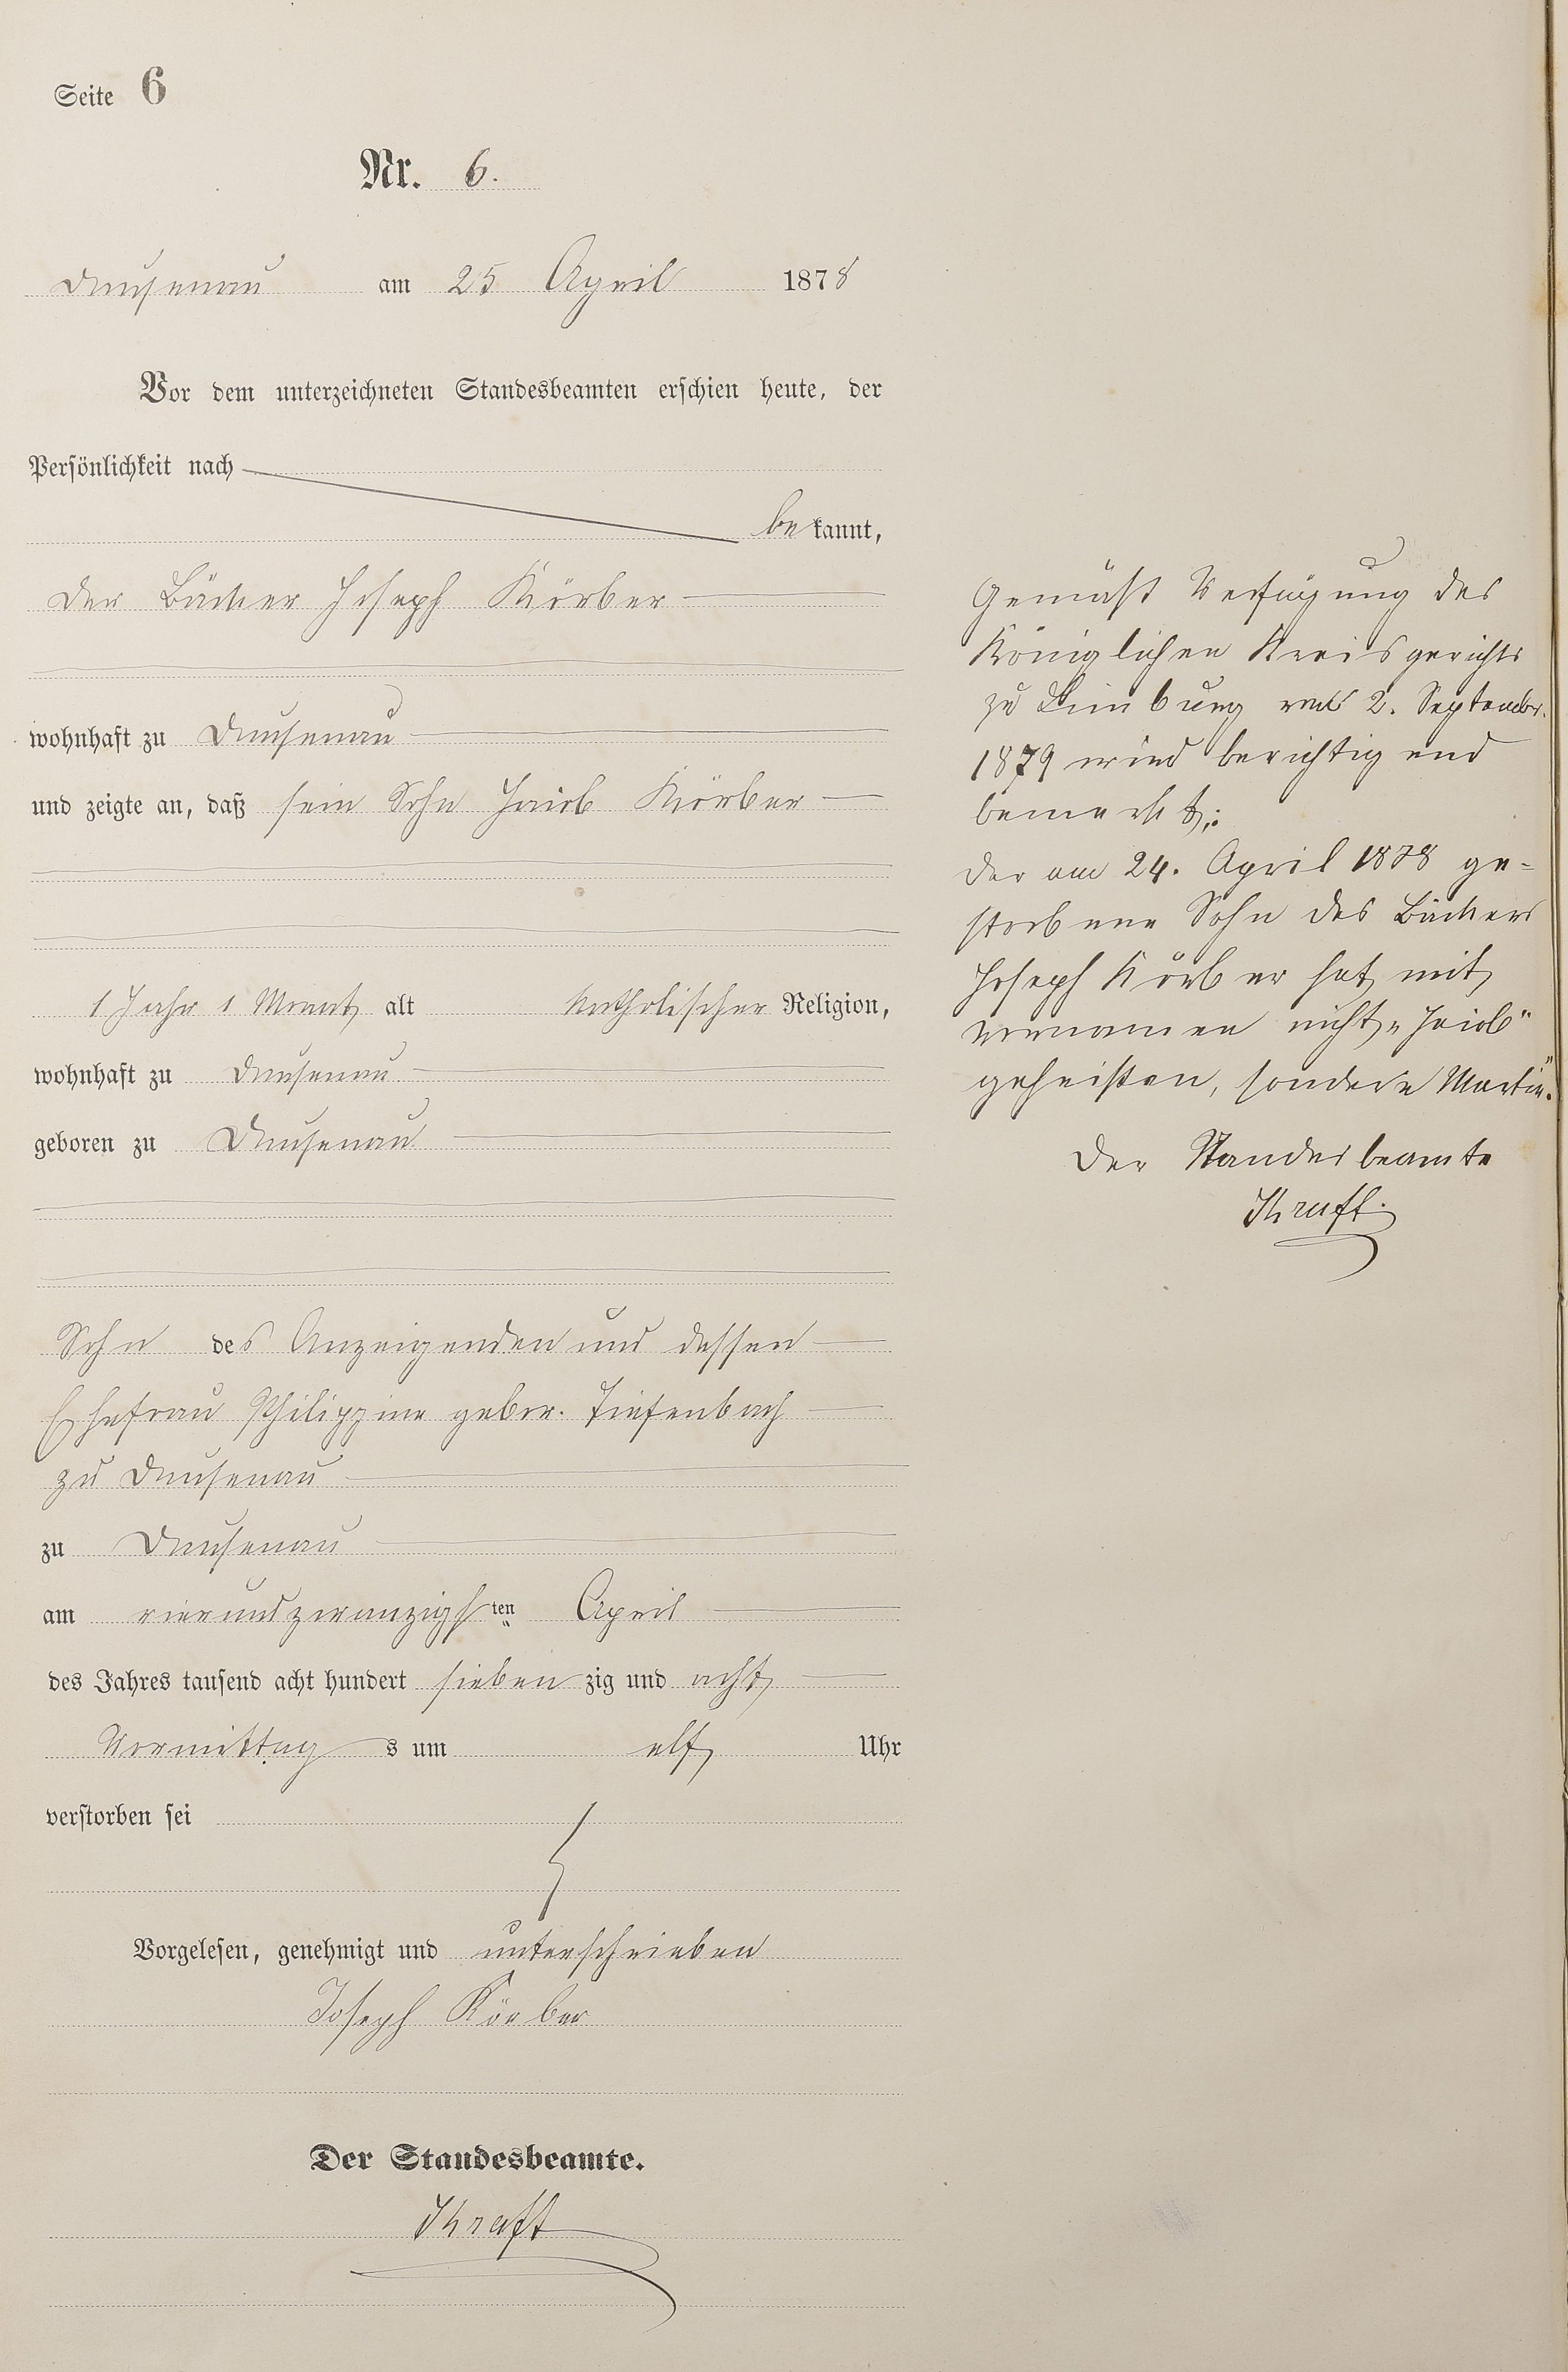 Seite 6
Nr. 6.
Dausenau am 25 April 1878
Vor dem unterzeichneten Standesbeamten erschien heute, der
Persönlichkeit nach
bekannt,
der Bäcker Joseph Körber
wohnhaft zu Dausenau
und zeigte an, daß sein Sohn Jacob Körber
1 Jahr 1 Monat alt katholischer Religion,
wohnhaft zu Dausenau
geboren zu Dausenau
Sohn des Anzeigenden und dessen
Ehefrau Philippine gebor. Tiefenbach
zu Dausenau
zu Dausenau
am vierundzwanzigsten April
des Jahres tausend acht hundert siebenzig und acht
Vormittags um elf Uhr
verstorben sei
Vorgelesen, genehmigt und unterschrieben
Joseph Körber
Der Standesbeamte.
Kraft
Gemäß Verfügung des
Königlichen Kreisgerichts
zu Limburg vom 2. September.
1879 wird berichtigend
bemerkt:
der am 24. April 1878 ge-
storbene Sohn des Bäckers
Joseph Körber hat mit
Vornamen nicht „Jacob"
geheißen, sondern Martin".
Der Standesbeamte
Kraft.